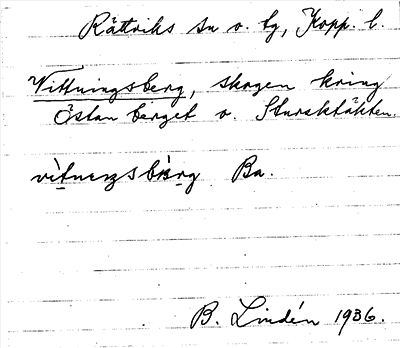 Rättviks sn o. tg, Kopp. l.
Vittningsberg, skogen kring
Östan berget o. Sturaktäkten.
vìtnɩŋs bä̀rg Ba.
B. Lindén 1936.